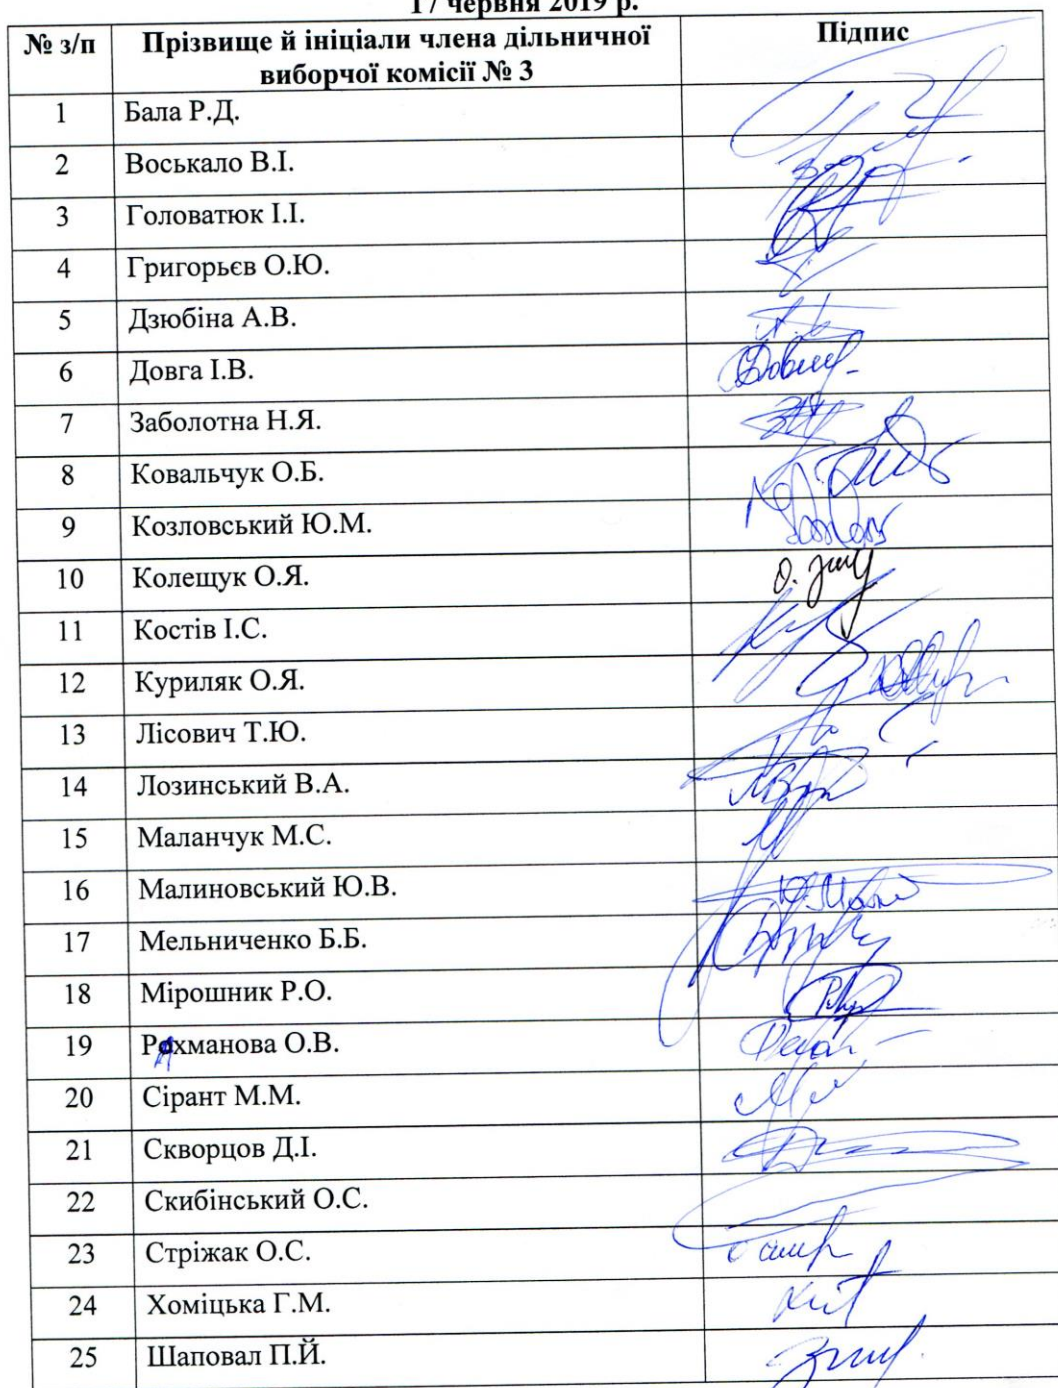 17 червня 2019 р.
№ з/п Прізвище й ініціали члена дільничної виборчої комісії № 3 Підпис
1 Бала Р.Д.
2 Воськало В.І.
3 Головатюк І.І.
4 Григорьєв О.Ю.
5 Дзюбіна А.В.
6 Довга І.В.
7 Заболотна Н.Я.
8 Ковальчук О.Б.
9 Козловський Ю.М.
10 Колещук О.Я.
11 Костів І.С.
12 Куриляк О.Я.
13 Лісович Т.Ю.
14 Лозинський В.А.
15 Маланчук М.С.
16 Малиновський Ю.В.
17 Мельниченко Б.Б.
18 Мірошник Р.О.
19 Рахманова О.В.
20 Сірант М.М.
21 Скворцов Д.І.
22 Скибінський О.С.
23 Стріжак О.С.
24 Хоміцька Г.М.
25 Шаповал П.Й.